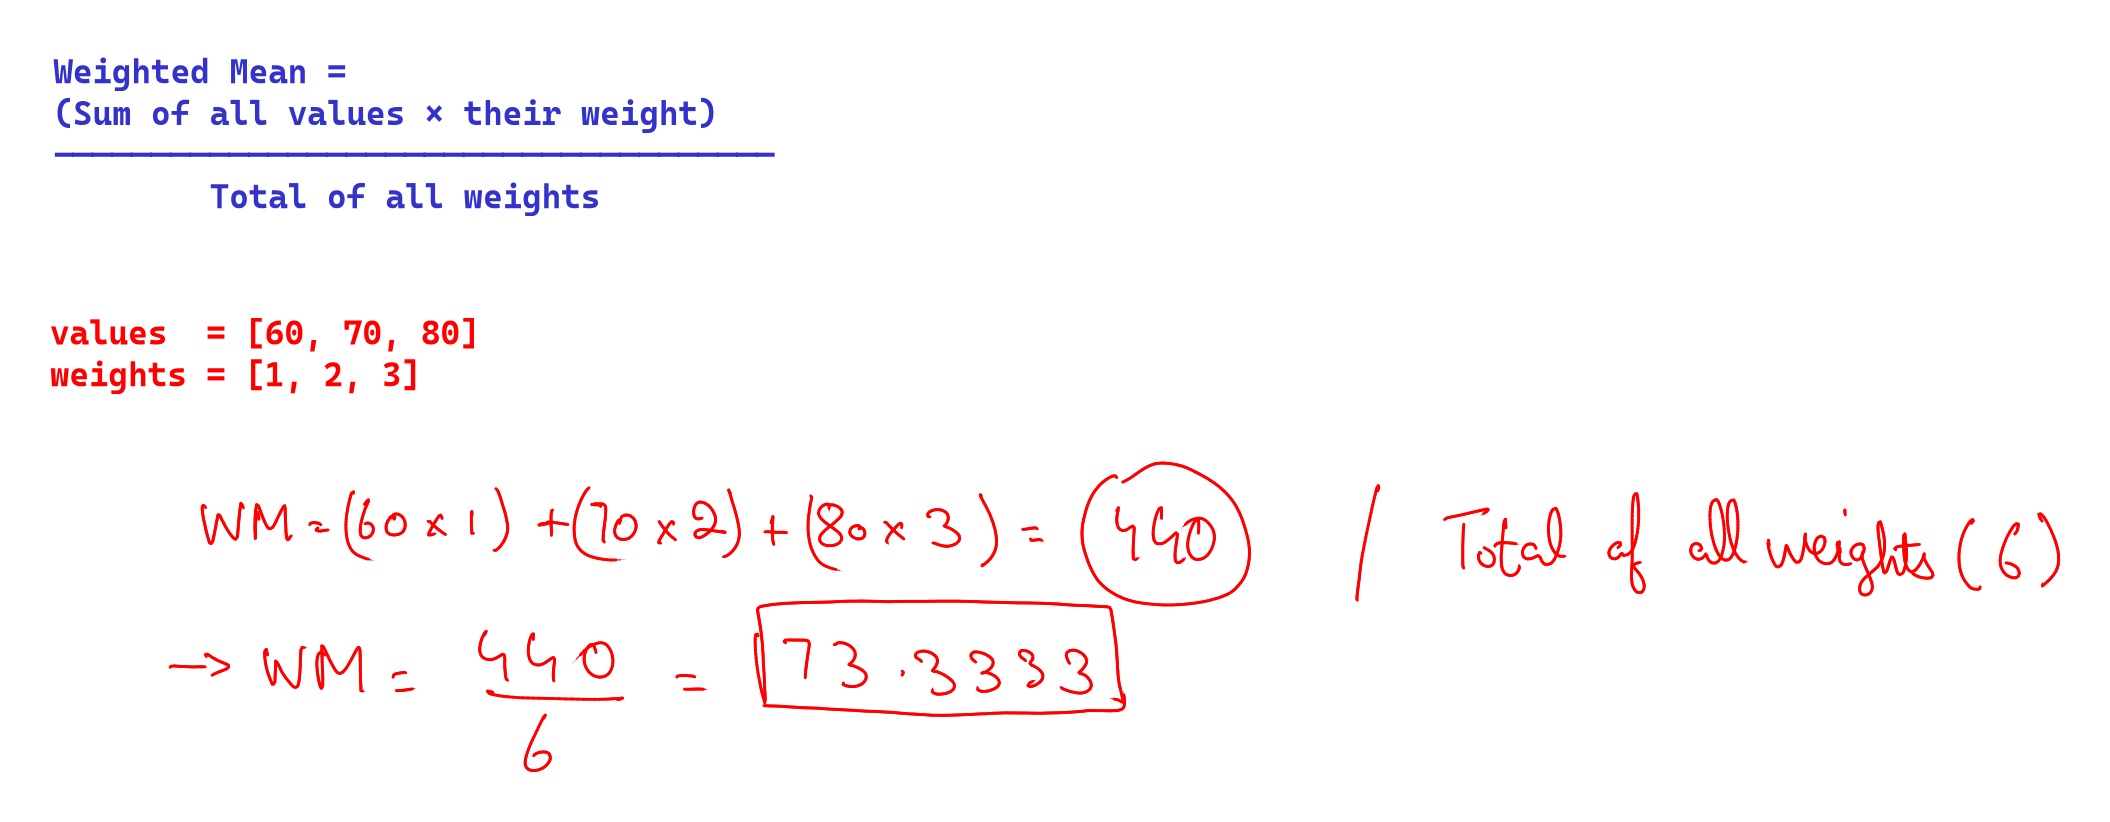 Weighted Mean =
(Sum of all values × their weight)
Total of all weights
values  = [60, 70, 80]
weights = [1, 2, 3]
WM = (60 x 1) + (70 x 2) + (80 x 3) = 440 / Total of all weights (6)
→ WM = 440 = 73.3333
6